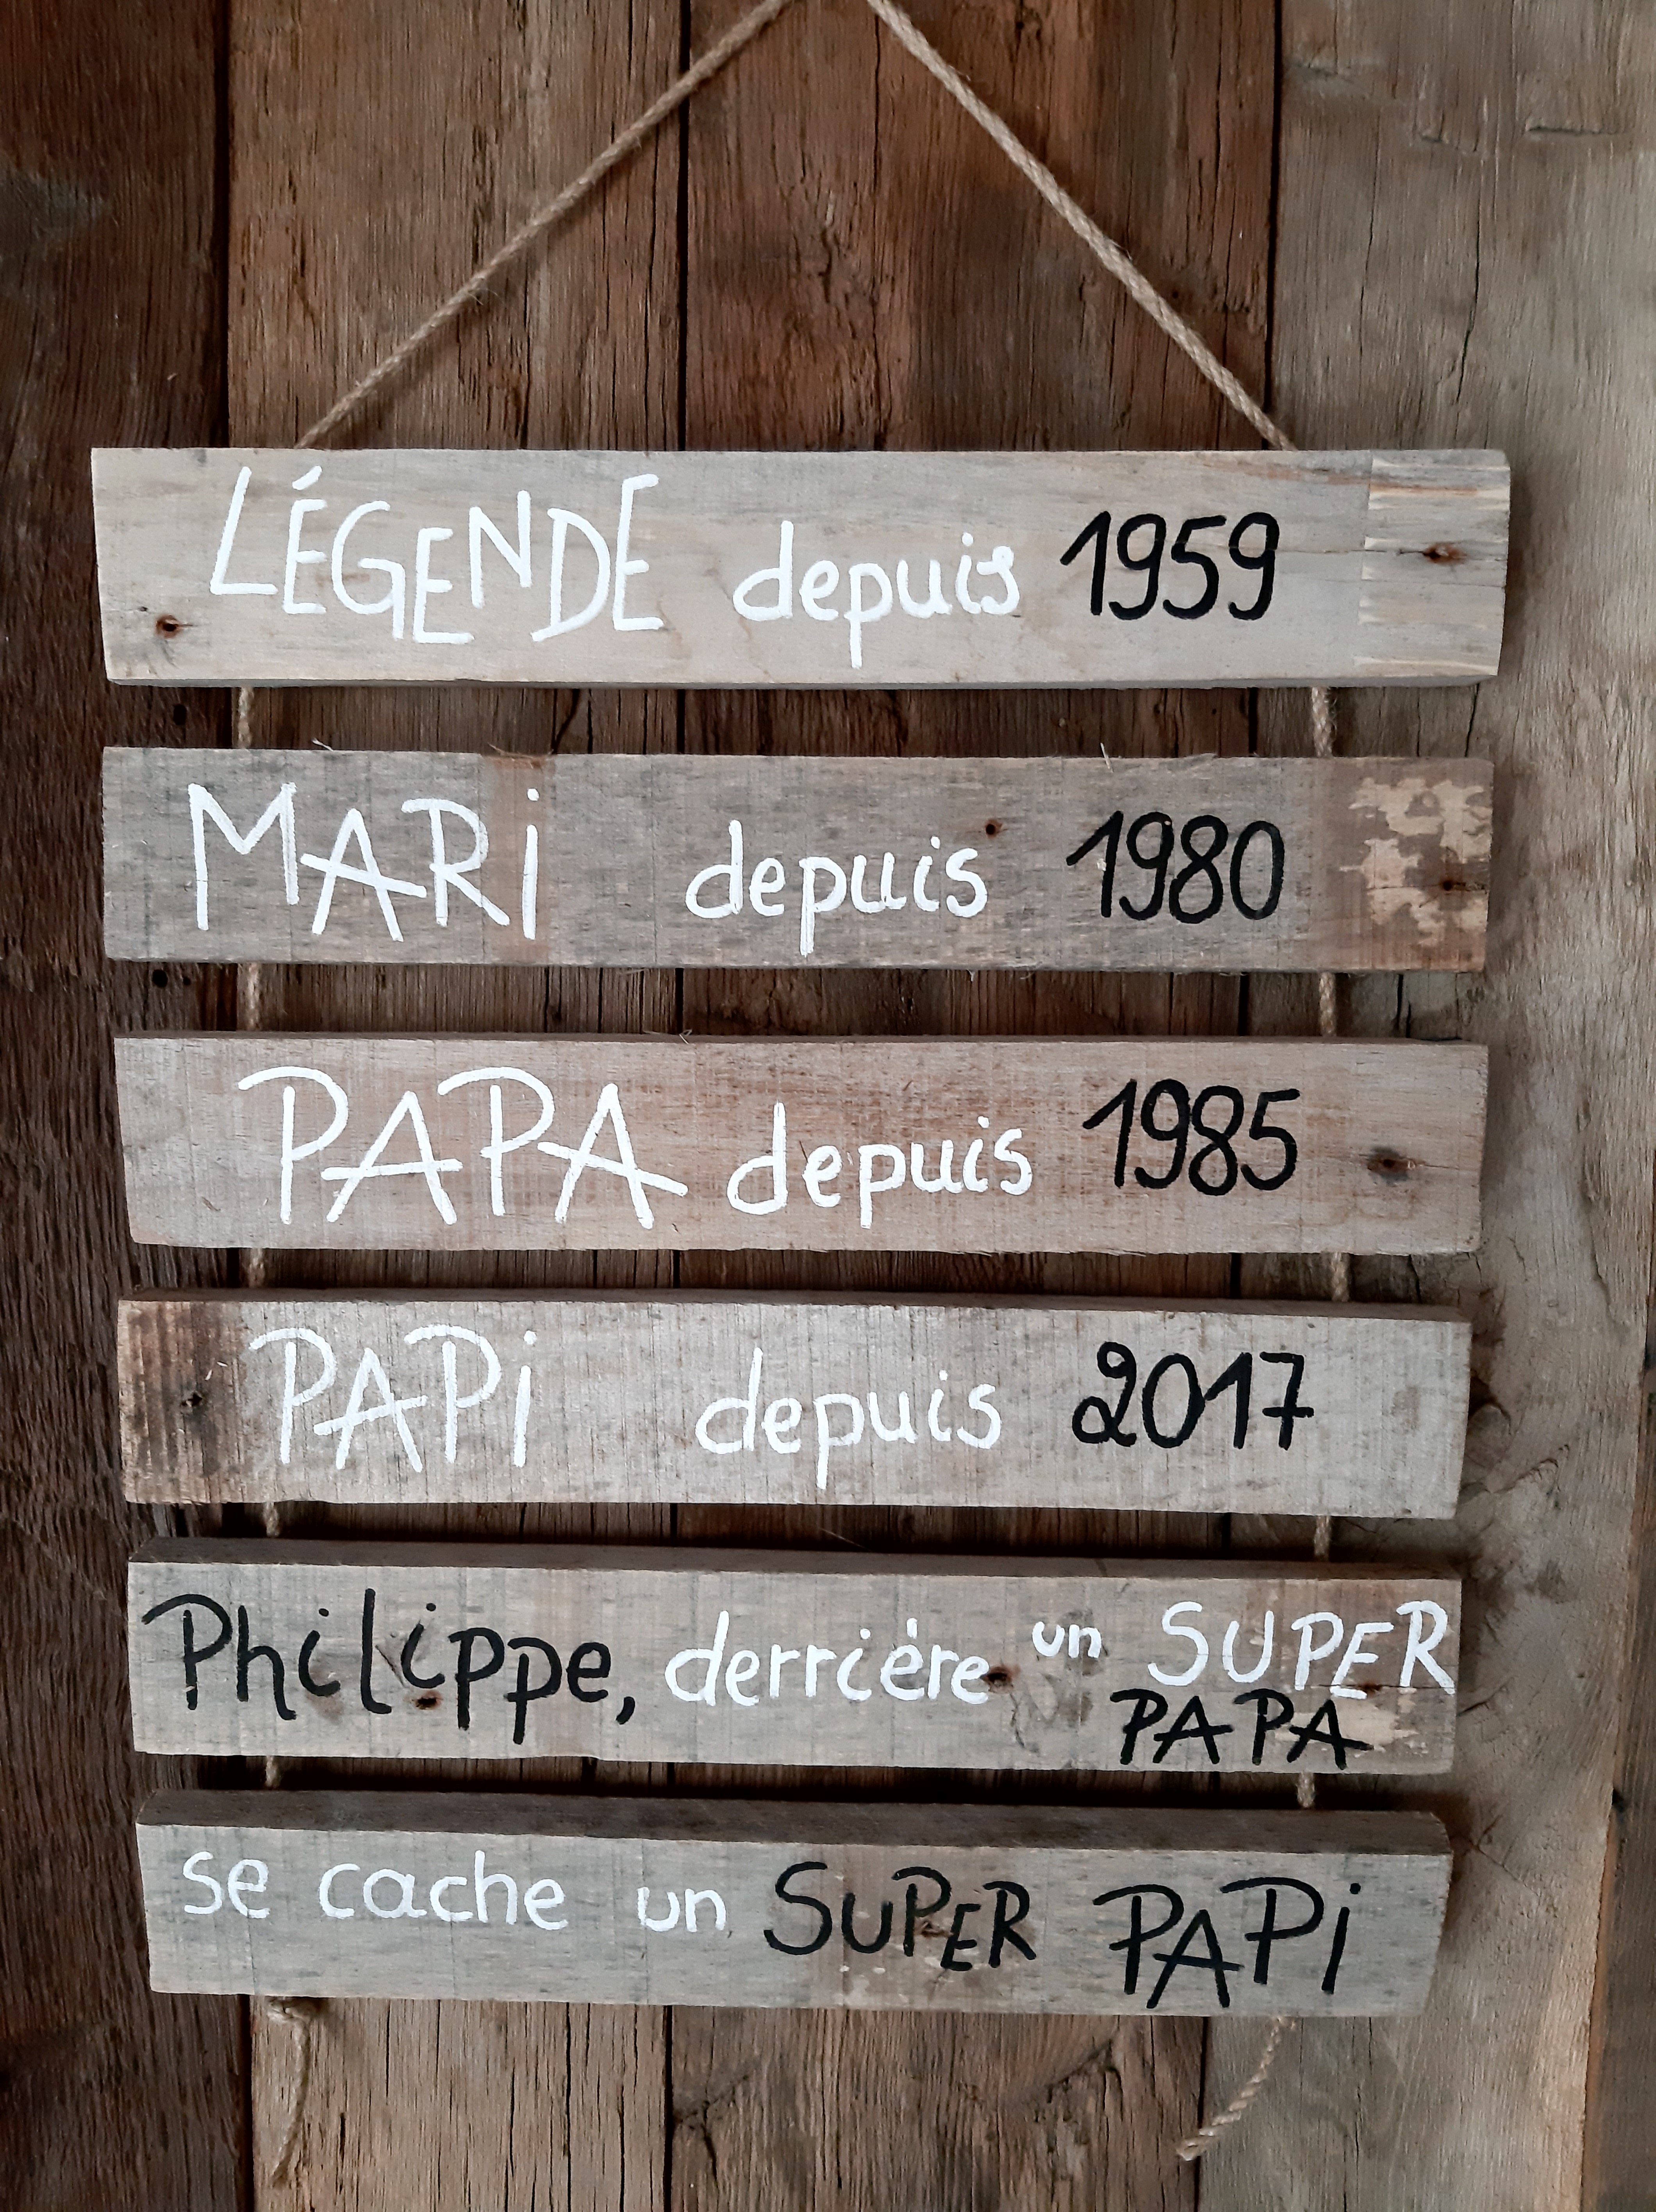 LÉGENDE depuis 1959
MARi depuis 1980
PAPA depuis 1985
PAPi depuis 2017
Philippe, derrière un SUPER
PAPA
se cache un SUPER PAPi